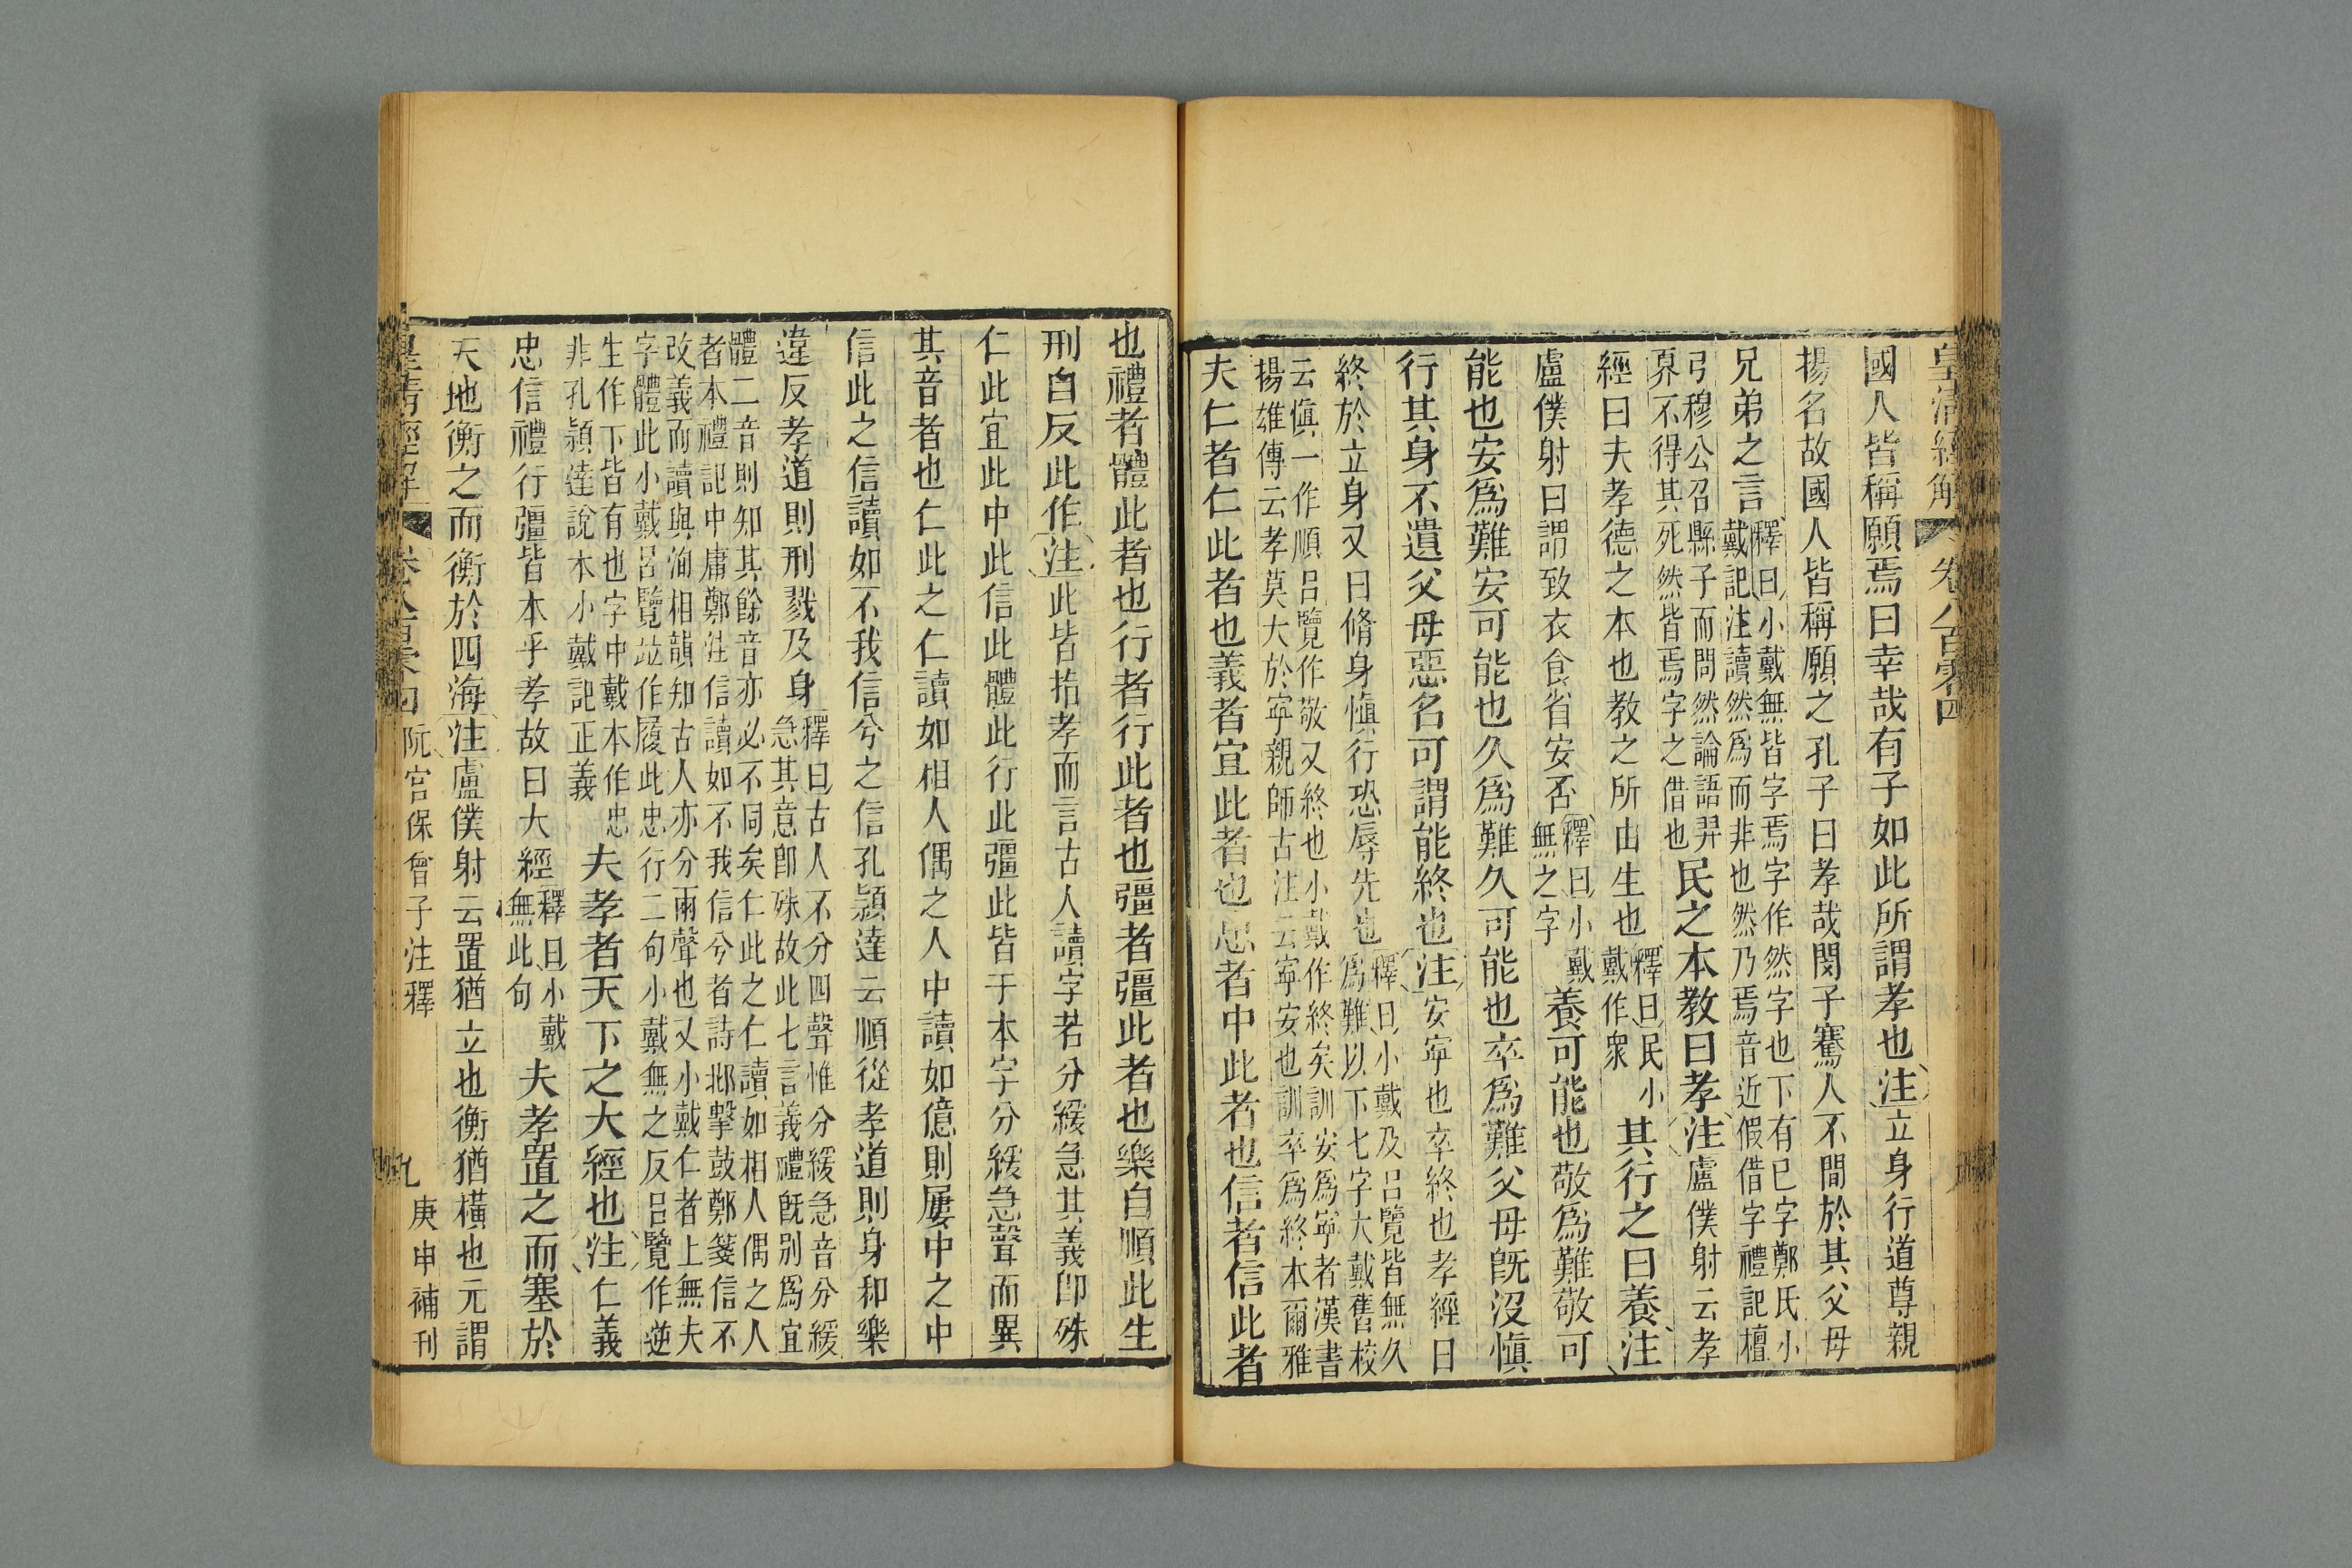 皇清經解 卷八百零四
國人皆稱願焉曰幸哉有子如此所謂孝也注立身行道尊親
揚名故國人皆稱願之孔子曰孝哉閔子騫人不間於其父母
兄弟之言釋曰小戴無皆字焉字作然字也下有已字鄭氏小
戴記注讀然爲而非也然乃焉音近假借字禮記檀
弓穆公召縣子而問然論語羿
奡不得其死然皆焉字之借也民之本教曰孝注盧僕射云孝
經曰夫孝德之本也教之所由生也釋曰民小
戴作衆其行之曰養注
盧僕射曰謂致衣食省安否釋曰小戴
無之字養可能也敬爲難敬可
能也安爲難安可能也久爲難久可能也卒爲難父母旣沒愼
行其身不遺父母惡名可謂能終也注安寜也卒終也孝經曰
終於立身又曰脩身愼行恐辱先也釋曰小戴及呂覽皆無久
爲難以下七字大戴舊校
云愼一作順呂覽作敬又終也小戴作終矣訓安爲寜者漢書
揚雄傳云孝莫大於寜親師古注云寜安也訓卒爲終本爾雅
夫仁者仁此者也義者宜此者也忠者中此者也信者信此者
也禮者體此者也行者行此者也彊者彊此者也樂自順此生
刑自反此作注此皆指孝而言古人讀字若分緩急其義卽殊
仁此宜此中此信此體此行此彊此皆于本字分緩急聲而異
其音者也仁此之仁讀如相人偶之人中讀如億則屢中之中
信此之信讀如不我信兮之信孔頴達云順從孝道則身和樂
違反孝道則刑戮及身釋曰古人不分四聲惟分緩急音分緩
急其意卽殊故此七言義禮旣別爲宜
體二音則知其餘音亦必不同矣仁此之仁讀如相人偶之人
者本禮記中庸鄭注信讀如不我信兮者詩邶擊鼓鄭箋信不
改義而讀與洵相韻知古人亦分兩聲也又小戴仁者上無夫
字體此小戴呂覽竝作履此忠行二句小戴無之反呂覽作逆
生作下皆有也字中戴本作忠
非孔頴達說本小戴記正義夫孝者天下之大經也注仁義
忠信禮行彊皆本乎孝故曰大經釋曰小戴
無此句夫孝置之而塞於
天地衡之而衡於四海注盧僕射云置猶立也衡猶橫也元謂
皇清經解 卷八百零四 阮宮保曾子注釋 九 庚申補刊